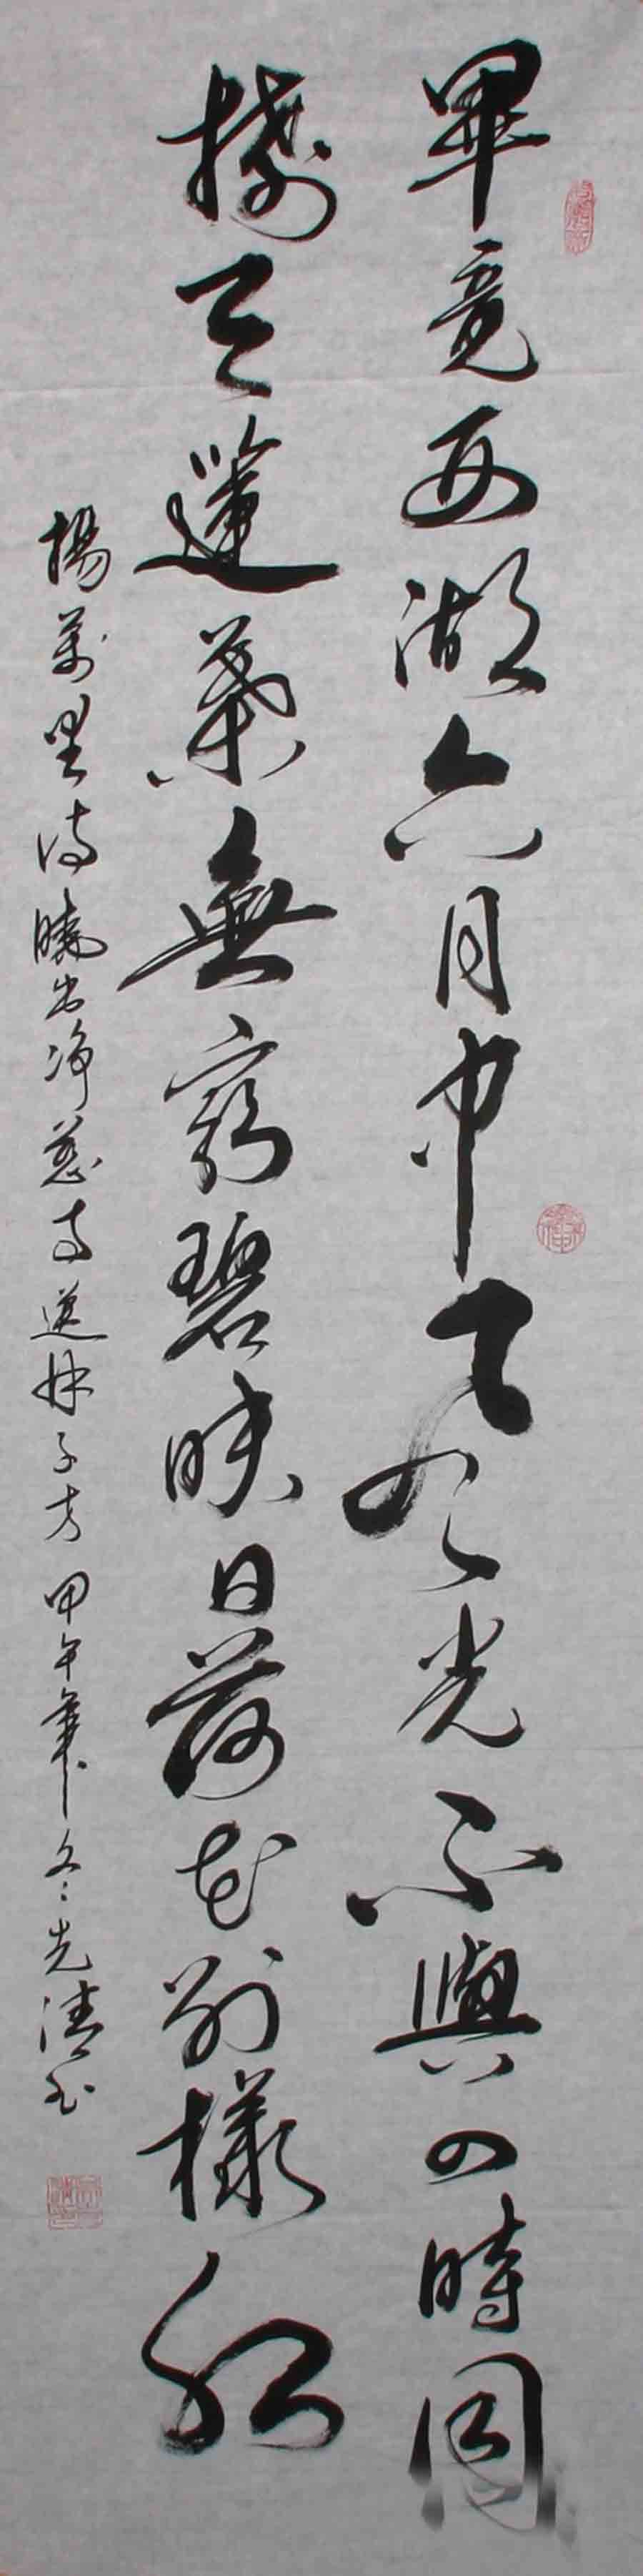 畢竟西湖六月中風光不與四時同
接天蓮葉無窮碧映日荷花別樣紅
楊萬里詩曉出净慈寺送林子方甲午年冬光清書